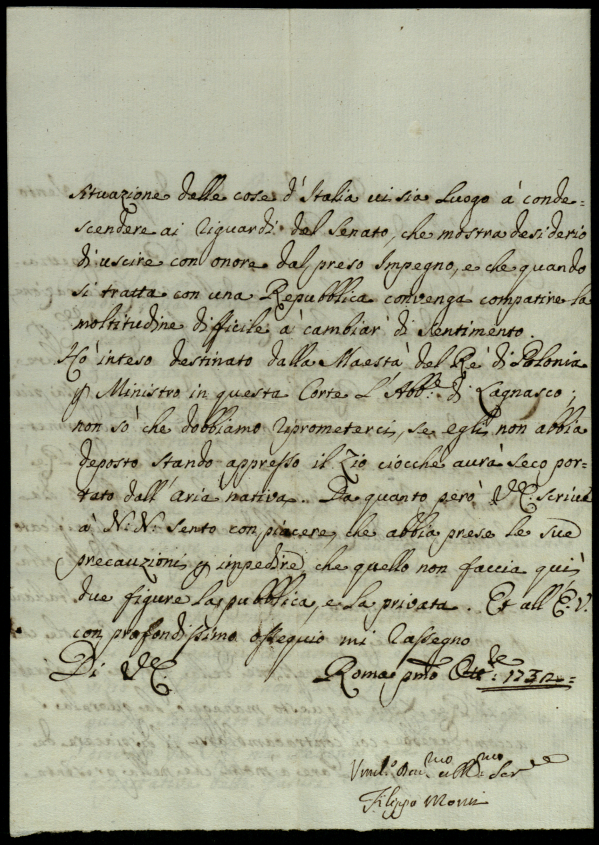 situazione delle cose d'Italia vi sia Luogo à conde=
scendere ai riguardi del Senato, che mostra desiderio
di uscire con onore dal preso Impegno, e che quando
si tratta con una Repubblica convenga compatire la
moltitudine difficile à cambiar di sentimento.
Hò inteso destinato dalla Maestà del Rè di Polonia
p Ministro in questa Corte L'Abb.e di Lagnasco;
non sò che dobbiamo riprometterci, se egli non abbia
deposto stando appresso il Zio ciocchè avrà seco por=
tato dall'aria nativa. Da quanto però V.E. scrive
à N: N: sento con piacere, che abbia prese le sue
precauzioni p impedire che quello non faccia quì
due figure la pubblica, e la privata. Et all'E: V.
con profondissimo ossequio mi rassegno
Di V.E. Roma pmo Ott.e 1732=
Umil.o Dev.mo Obb.mo Ser.re
Filippo Monti